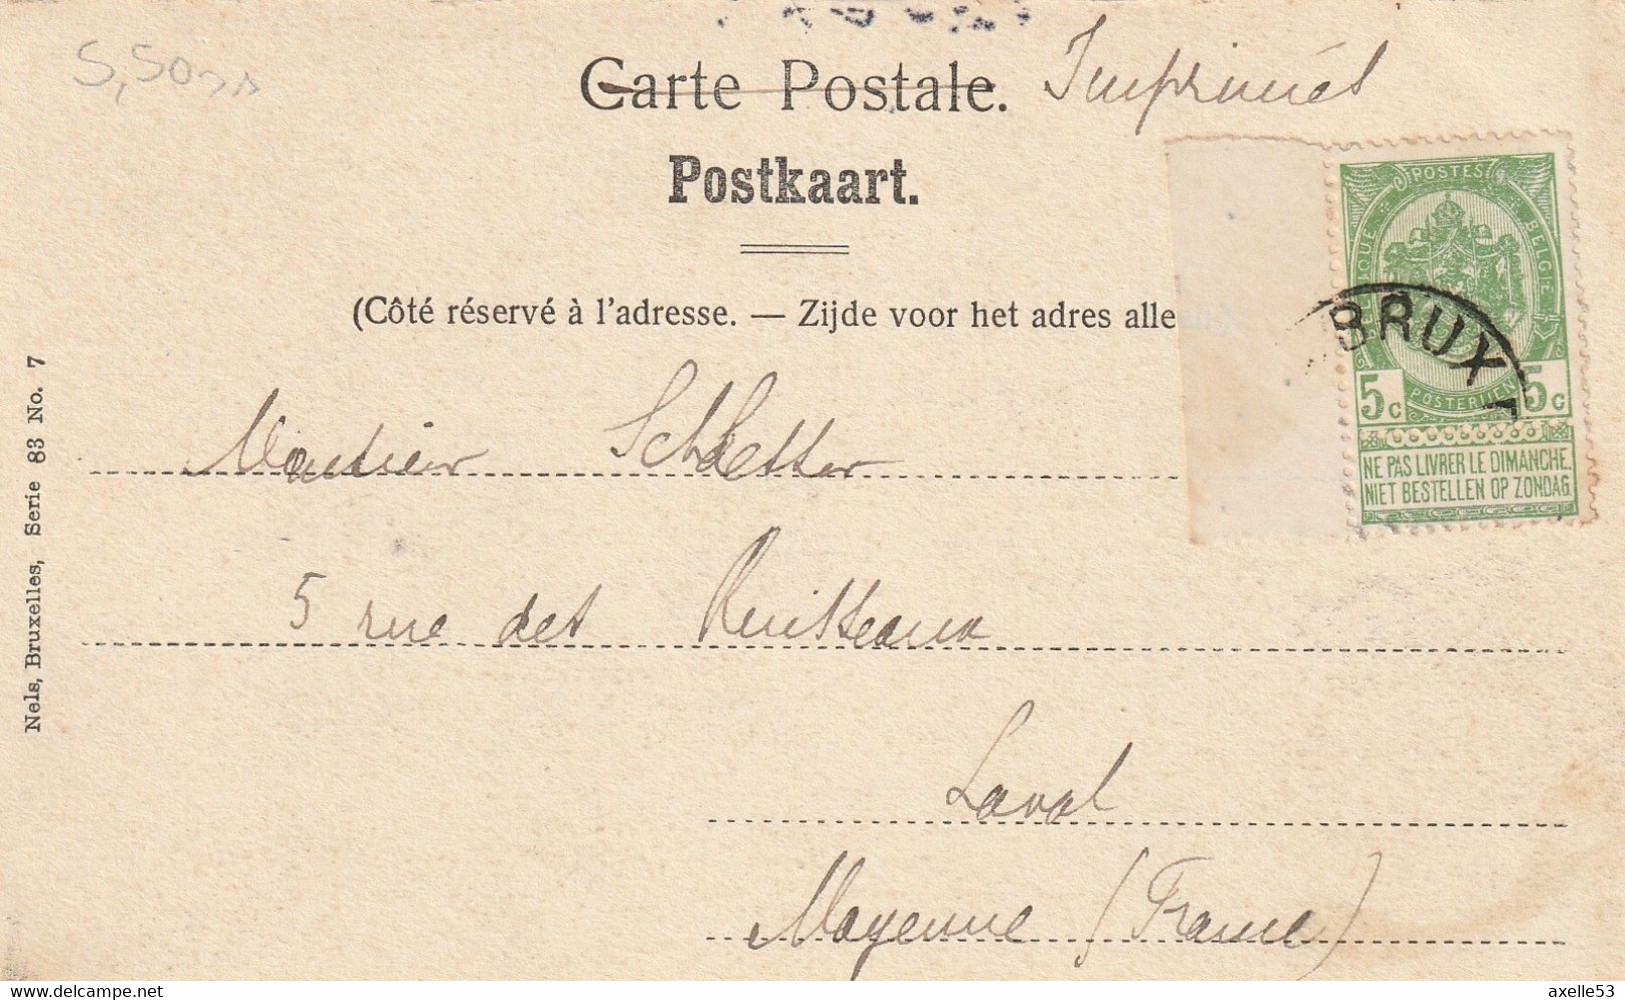 5,50
Carte Postale. Imprimés
Postkaart.
(Côté réservé à l'adresse. — Zijde voor het adres alle
POSTES
BELGIE
POSTERIJEN
BRUX
5c 5c
NE PAS LIVRER LE DIMANCHE.
NIET BESTELLEN OP ZONDAG.
Monsieur
5 rue des Ruisseaux
Laval
Mayenne (France)
Nels, Bruxelles, Serie 83 No. 7
https://www.delcampe.net
axelle53